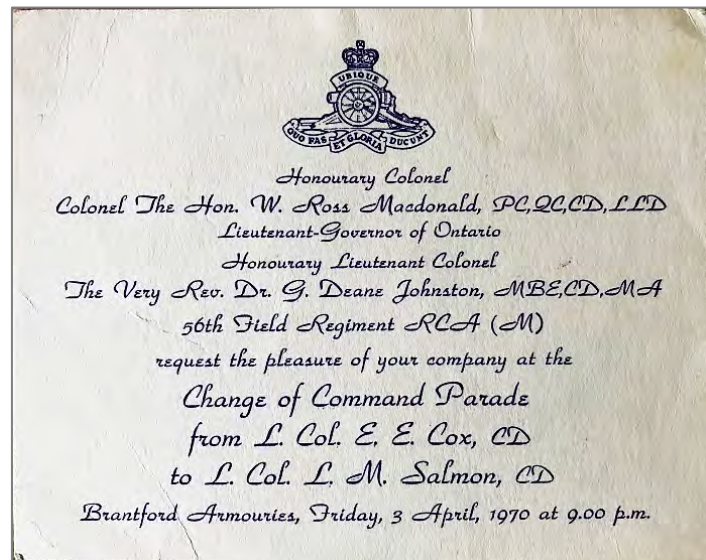 UBIQUE
QUO FAS ET GLORIA DUCUNT
Honourary Colonel
Colonel The Hon. W. Ross Macdonald, PC,QC,CD,LLD
Lieutenant-Governor of Ontario
Honourary Lieutenant Colonel
The Very Rev. Dr. G. Deane Johnston, MBE,CD,MA
56th Field Regiment RCA (M)
request the pleasure of your company at the
Change of Command Parade
from L. Col. E. E. Cox, CD
to L. Col. L. M. Salmon, CD
Brantford Armouries, Friday, 3 April, 1970 at 9.00 p.m.